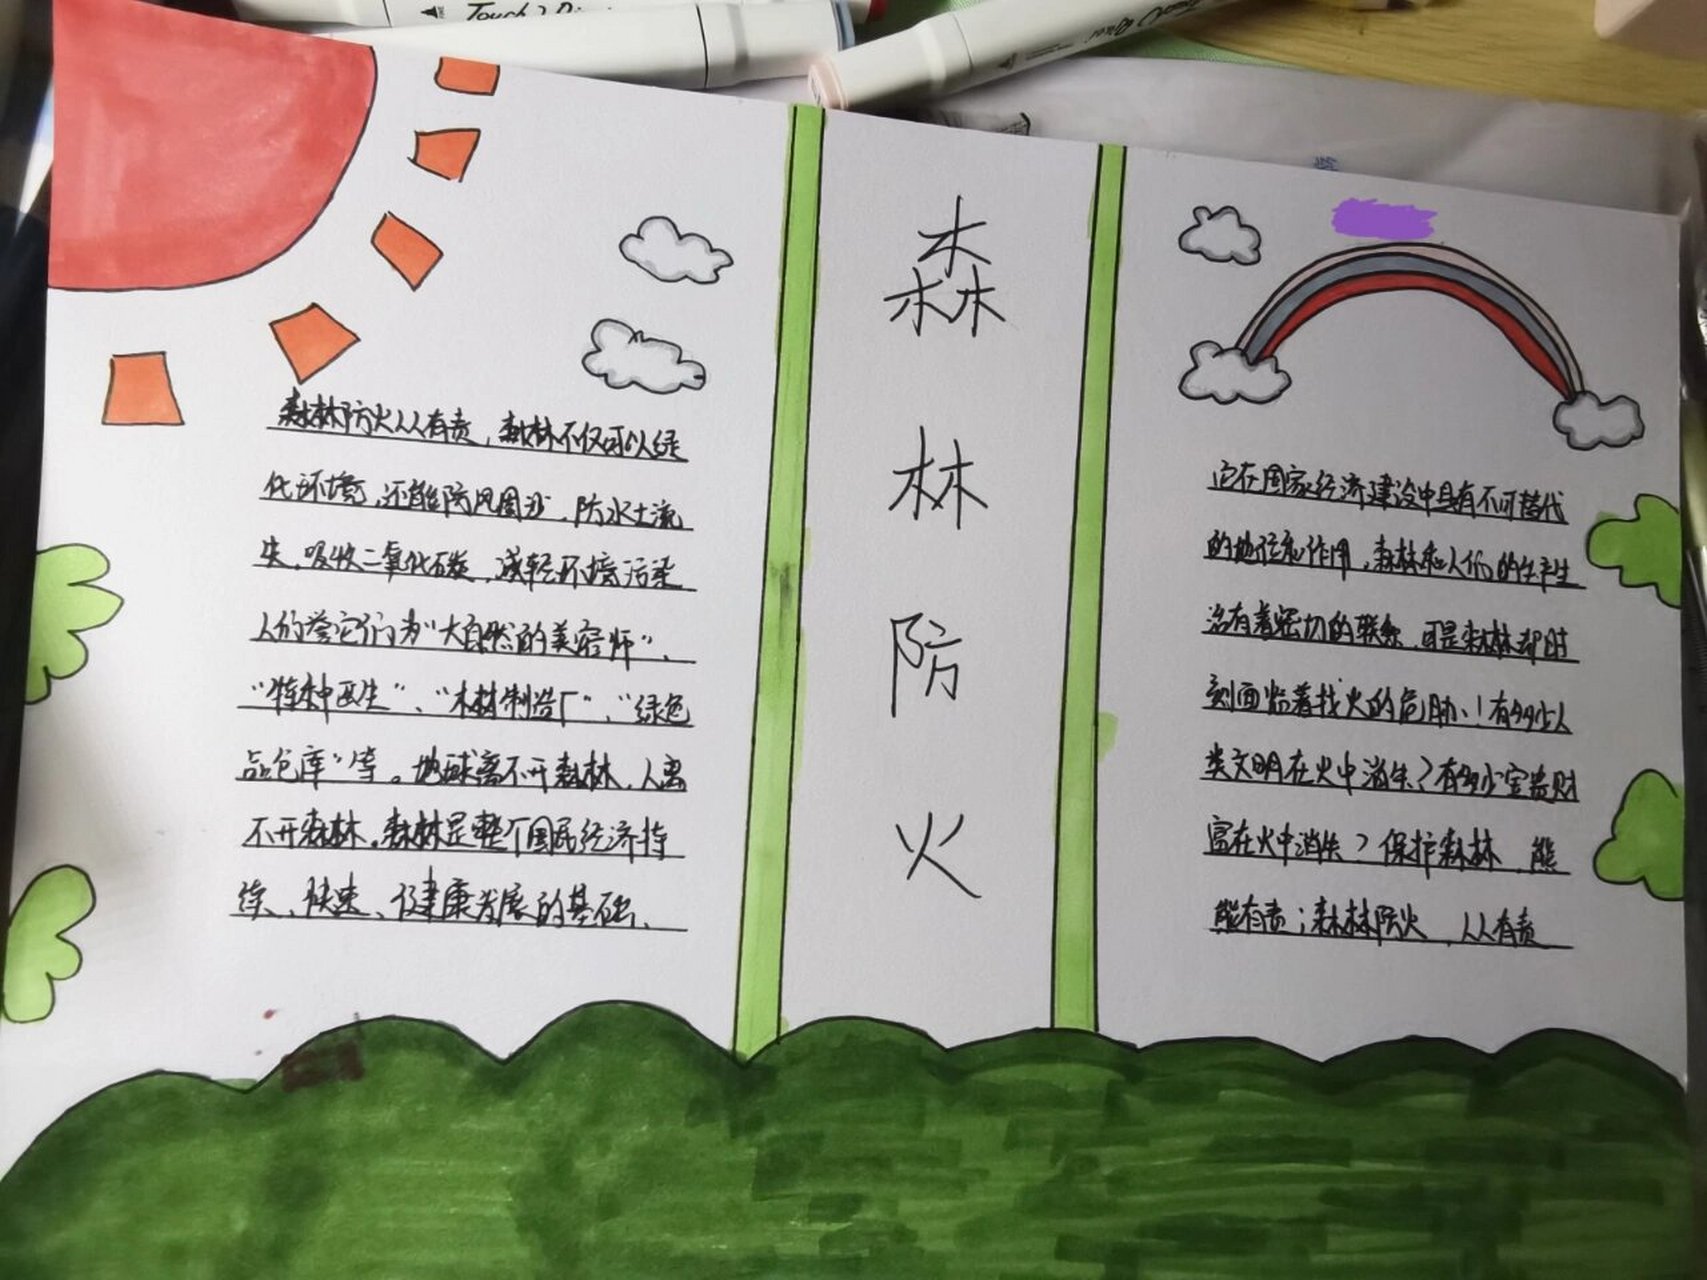 Touch
森
林
防
火
森林防火人人有责，森林不仅可以绿
化环境，还能防风固沙，防水土流
失，吸收二氧化碳，减轻环境污染
人们誉它们为“大自然的美容师”、
“特种卫生”、“木材制造厂”、“绿色
品仓库”等。地球离不开森林，人离
不开森林。森林是整个国民经济持
续、快速、健康发展的基础、
它在国家经济建设中具有不可替代
的地位和作用，森林和人们的生产生
活有着密切的联系，可是森林却时
刻面临着找火的危胁！有多少人
类文明在火中消失？有多少宝贵财
富在火中消失？保护森林，熊
熊有责；森林防火，人人有责